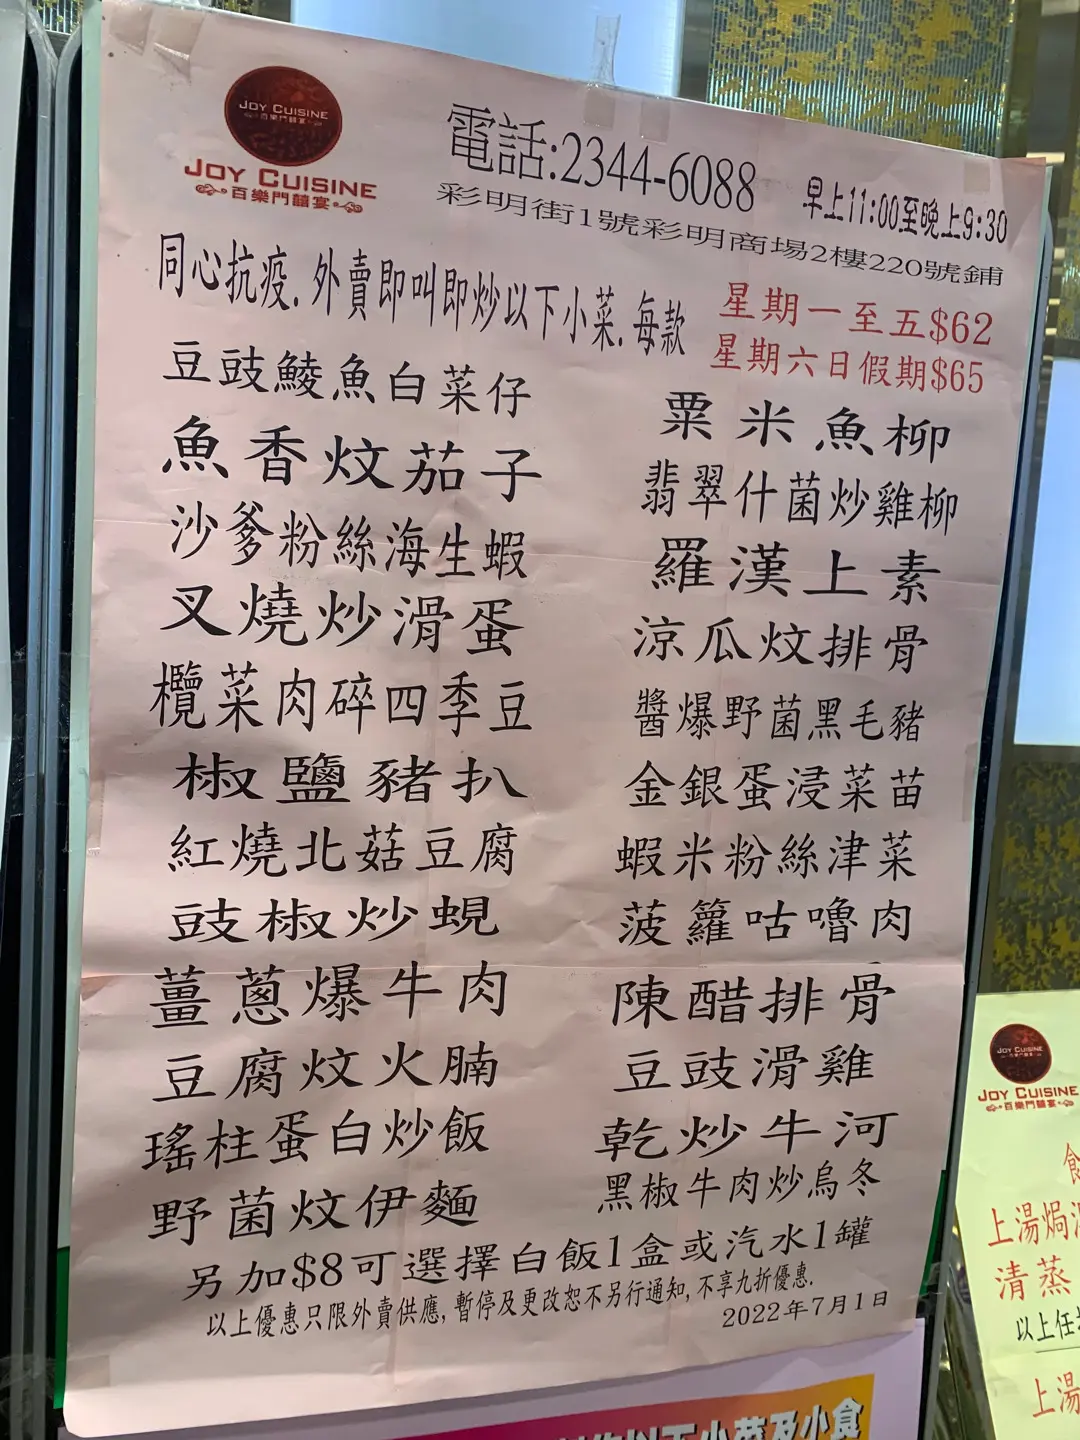 JOY CUISINE
百樂門囍宴
JOY CUISINE
百樂門囍宴
電話:2344-6088
早上11:00至晚上9:30
彩明街1號彩明商場2樓220號鋪
同心抗疫. 外賣即叫即炒以下小菜. 每款
星期一至五$62
星期六日假期$65
豆豉鯪魚白菜仔
魚香炆茄子
沙爹粉絲海生蝦
叉燒炒滑蛋
欖菜肉碎四季豆
椒鹽豬扒
紅燒北菇豆腐
豉椒炒蜆
薑蔥爆牛肉
豆腐炆火腩
瑤柱蛋白炒飯
野菌炆伊麵
粟米魚柳
翡翠什菌炒雞柳
羅漢上素
涼瓜炆排骨
醬爆野菌黑毛豬
金銀蛋浸菜苗
蝦米粉絲津菜
菠籮咕嚕肉
陳醋排骨
豆豉滑雞
乾炒牛河
黑椒牛肉炒烏冬
另加$8可選擇白飯1盒或汽水1罐
以上優惠只限外賣供應, 暫停及更改恕不另行通知, 不享九折優惠.
2022年7月1日
JOY CUISINE
JOY CUISINE
百樂門囍宴
上湯焗
清蒸
以上任
上湯
以下小菜及小食